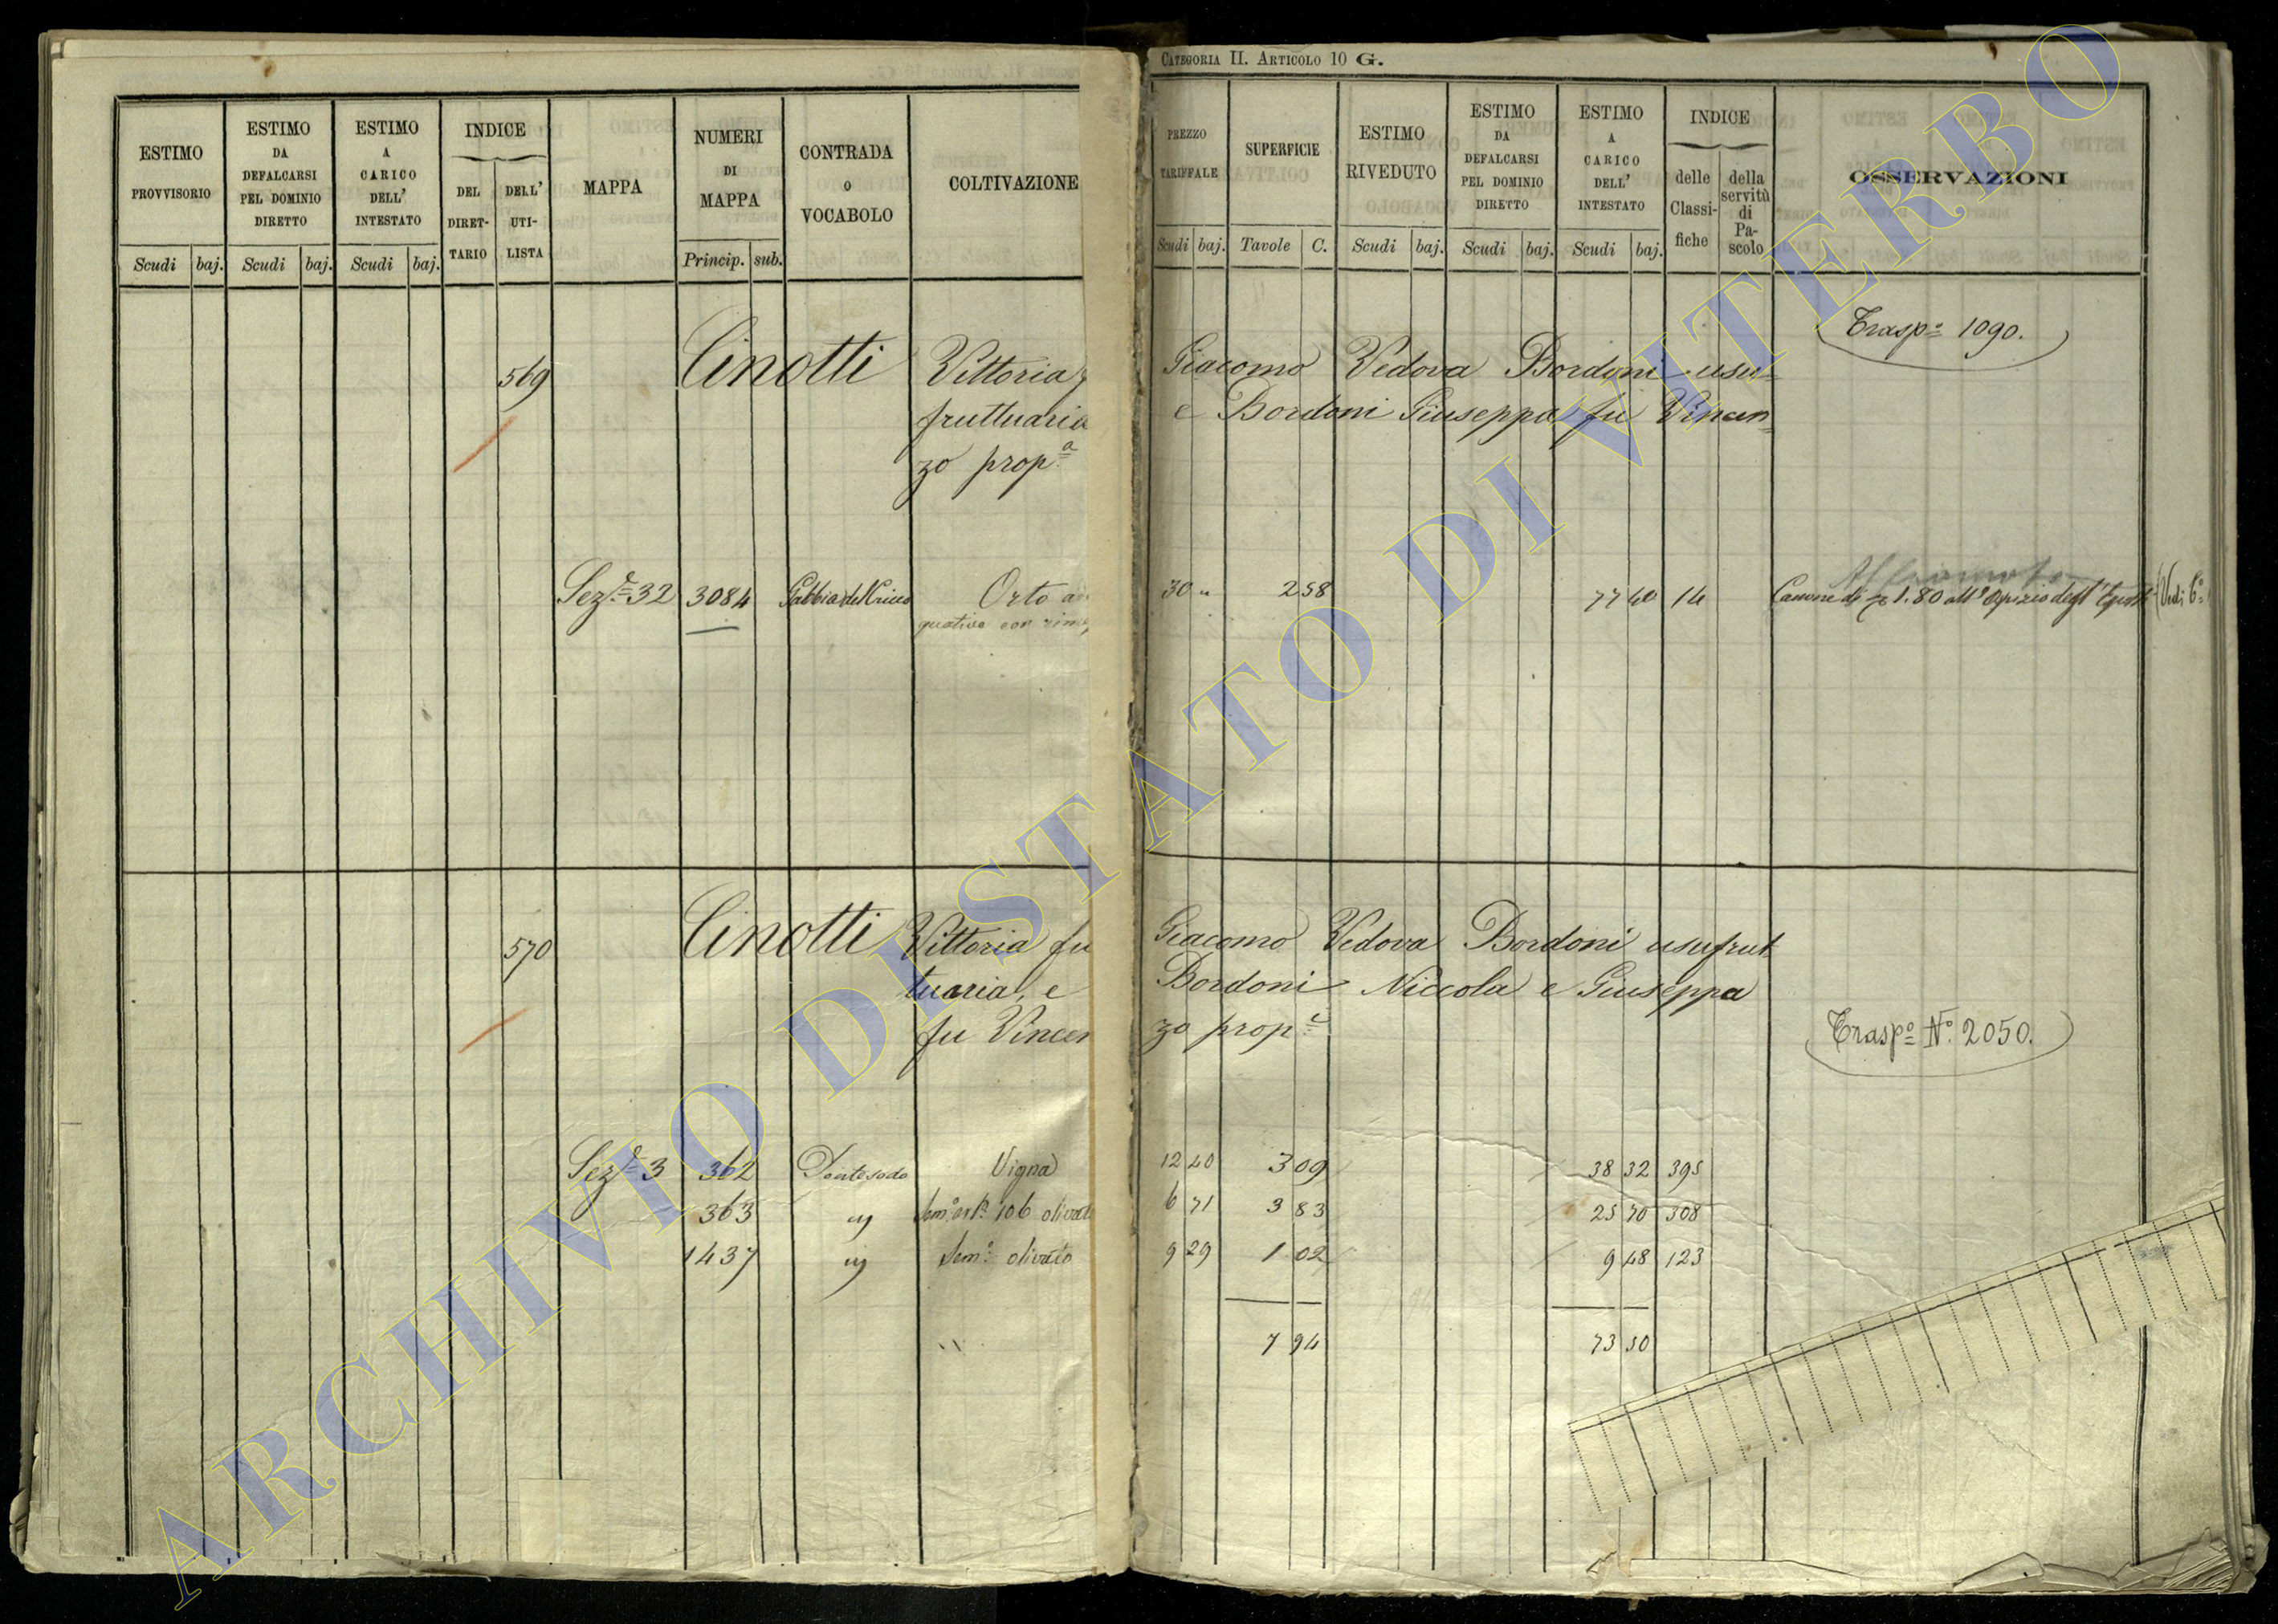 CATEGORIA II. ARTICOLO 10 G.
ESTIMO PROVVISORIO
Scudi baj.
ESTIMO DA DEFALCARSI PEL DOMINIO DIRETTO
Scudi baj.
ESTIMO A CARICO DELL' INTESTATO
Scudi baj.
INDICE
DEL DIRET-TARIO
DELL' UTI-LISTA
MAPPA
NUMERI DI MAPPA
Princip. sub.
CONTRADA O VOCABOLO
COLTIVAZIONE
PREZZO TARIFFALE
Scudi baj.
SUPERFICIE
Tavole C.
ESTIMO RIVEDUTO
Scudi baj.
ESTIMO DA DEFALCARSI PEL DOMINIO DIRETTO
Scudi baj.
ESTIMO A CARICO DELL' INTESTATO
Scudi baj.
INDICE
delle Classi-fiche
della servitù di Pa-scolo
OSSERVAZIONI
Trasp.o 1090.
569 Cinotti Vittoria Giacomo Vedova Bordoni usu=
fruttuaria e Bordoni Giuseppa fu Vincen=
zo prop.a
Sez.e 32 3084 Orto 30 " 2 58 77 40 14 Canone di 1.80 all'Ospizio degl' Esposti (Vedi
570 Cinotti Vittoria fu Giacomo Vedova Bordoni usufrut
tuaria, e Bordoni Niccola e Giuseppa
fu Vincen zo prop.i
Trasp.o N.o 2050.
Sez.e 3 362 Pontesodo Vigna 12 40 3 09 38 32 395
363 " Sem.o 106 olivato 6 71 3 83 25 70 308
1437 " Sem.o olivato 9 29 1 02 9 48 123
7 94 73 50
ARCHIVIO DI STATO DI VITERBO